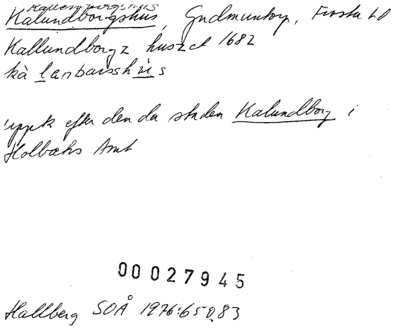 Kalundborgshus, Gudmuntorp, Frosta hd
Kallundborgz huszet 1682
kà lanbårsshùs
uppk efter den da staden Kalundborg i
Holbæks Amt
00027945
Hallberg SOÅ 1976:650,83